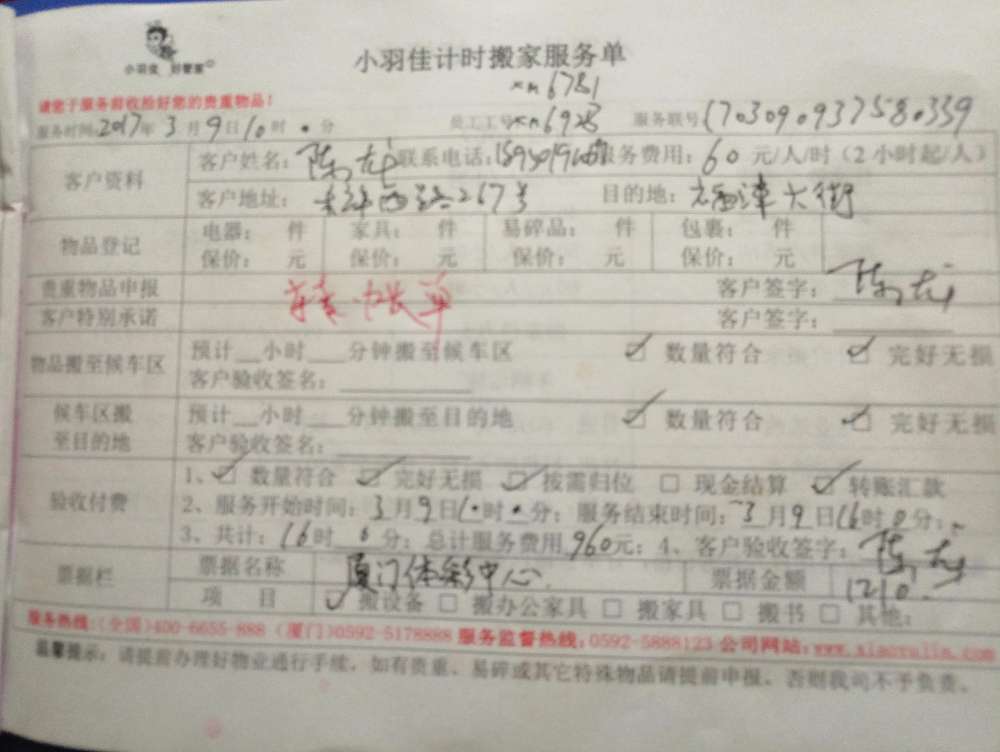 小羽佳 好管家
小羽佳计时搬家服务单
xm6781
请您于服务前收捡好您的贵重物品！
服务时间:2017年3月9日10时 分 员工工号:xm6928 服务联号:1703090937580339
客户资料 客户姓名：陈龙 联系电话： 服务费用：60元/人/时（2小时起/人）
客户地址：西路267号 目的地：大街
物品登记 电器： 件 家具： 件 易碎品： 件 包裹： 件
保价： 元 保价： 元 保价： 元 保价： 元
贵重物品申报 客户签字：陈龙
转帐单
客户特别承诺 客户签字：
物品搬至候车区 预计__小时___分钟搬至候车区 ☑ 数量符合 ☑ 完好无损
客户验收签名：
候车区搬至目的地 预计__小时___分钟搬至目的地 ☑ 数量符合 ☑ 完好无损
客户验收签名：
验收付费 1、☑ 数量符合 ☑ 完好无损 ☑ 按需归位 □ 现金结算 ☑ 转账汇款
2、服务开始时间：3月9日10时0分；服务结束时间：3月9日16时0分；
3、共计：16时0分；总计服务费用960元；4、客户验收签字：陈龙
票据栏 票据名称 厦门体彩中心 票据金额 1210.
项 目 ☑ 搬设备 □ 搬办公家具 □ 搬家具 □ 搬书 □ 其他：
服务热线：(全国)400-6655-888 (厦门)0592-5178888 服务监督热线：0592-5888123 公司网站：www.xiaoyujia.com
温馨提示：请提前办理好物业通行手续，如有贵重、易碎或其它特殊物品请提前申报，否则我司不予负责。